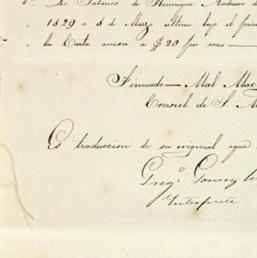 Los Salarios de Henrique
1829 a 8 de Marzo ultimo bajo el
la Carta anexa a $20 por mes
Firmado — Mal Mac
Consul de S. M
Es traduccion de su original que
Greg.º Gomez
Interprete